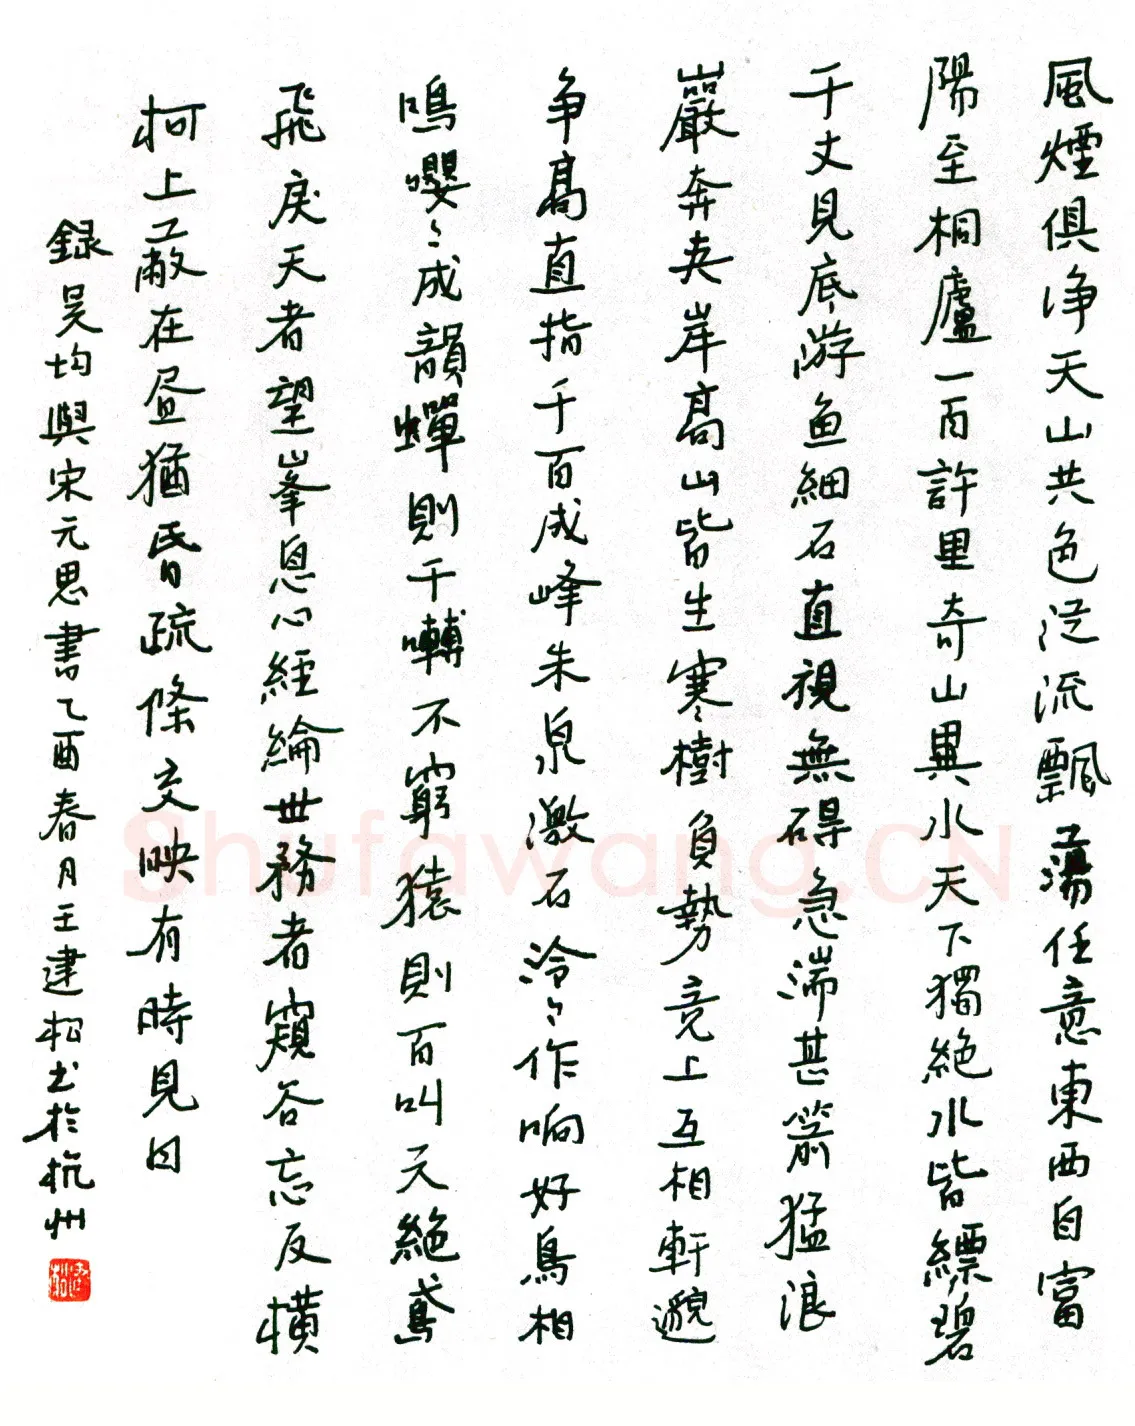 風煙俱净天山共色從流飄蕩任意東西自富
陽至桐廬一百許里奇山異水天下獨絕水皆縹碧
千丈見底游鱼細石直視無碍急湍甚箭猛浪
巖奔夹岸高山皆生寒樹負勢竞上互相軒邈
争高直指千百成峰朱泉激石泠々作响好鳥相
鳴嚶々成韻蟬則千囀不窮猿則百叫无絕鳶
飛戾天者望峯息心經綸世務者窺谷忘反横
柯上蔽在昼猶昏疏條交映有時見日
録吴均與宋元思書乙酉春月王建松书於杭州
Shufawang.CN